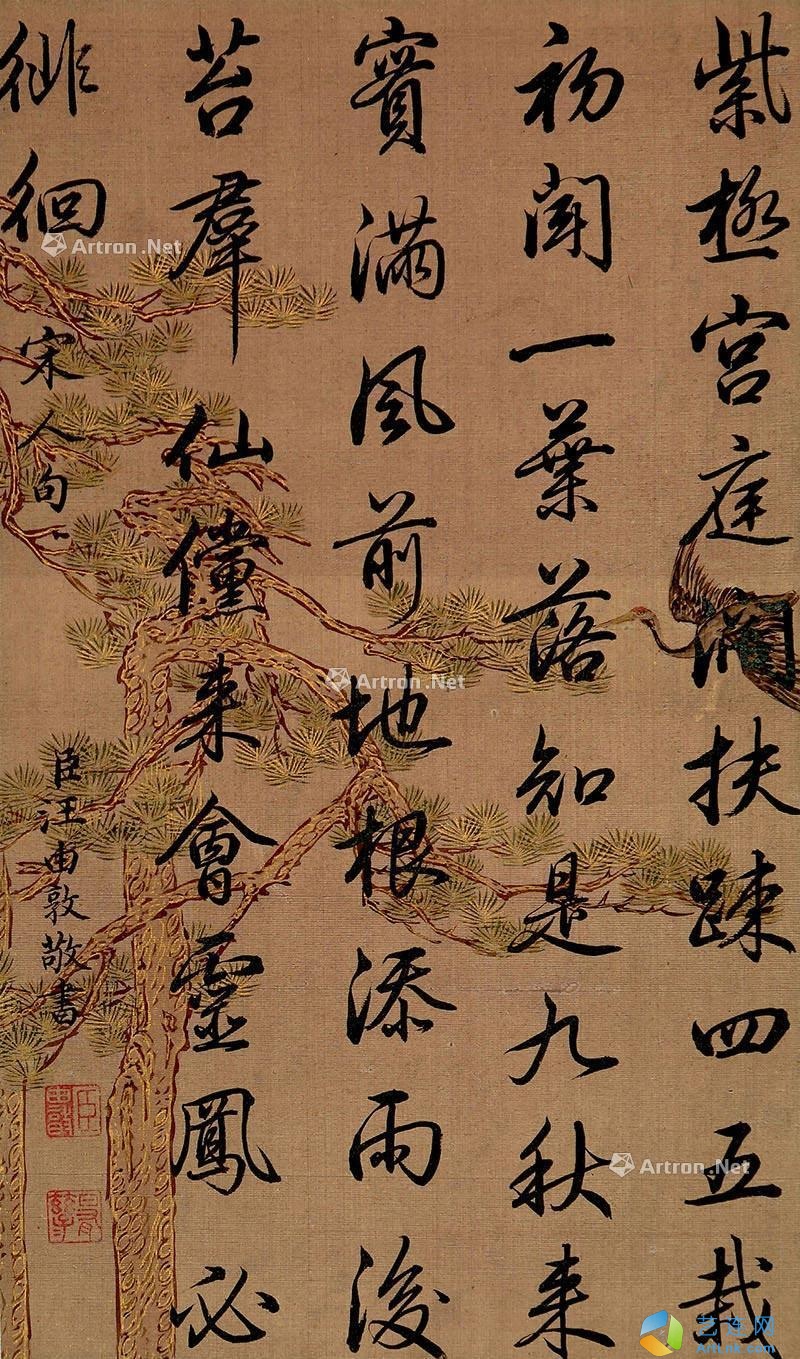 紫極宮庭濶扶疎四五栽
初聞一葉落知是九秋来
實滿風前地根添雨後
苔羣仙儻来會靈鳳必
徘徊
宋人句
臣汪由敦敬書
Artron.Net
Artron.Net
Artron.Net
艺连网